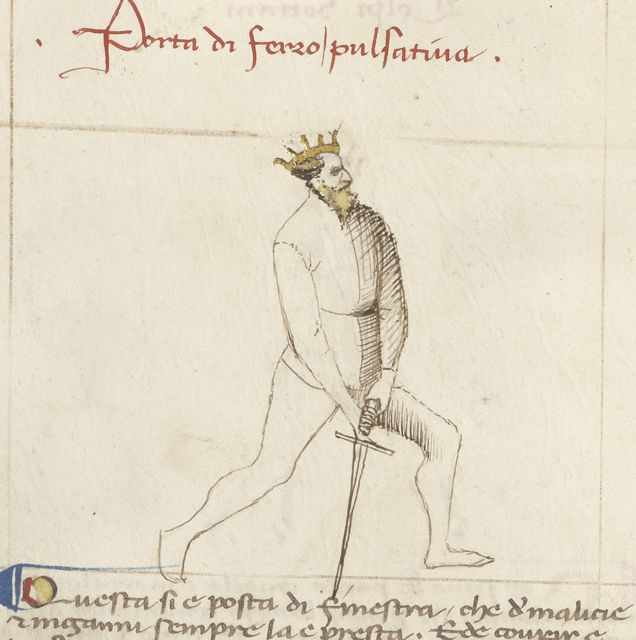 Porta di ferro pulsativa.
Questa si e posta di finestra, che d malicie
inganni sempre la e presta. E de covrir e